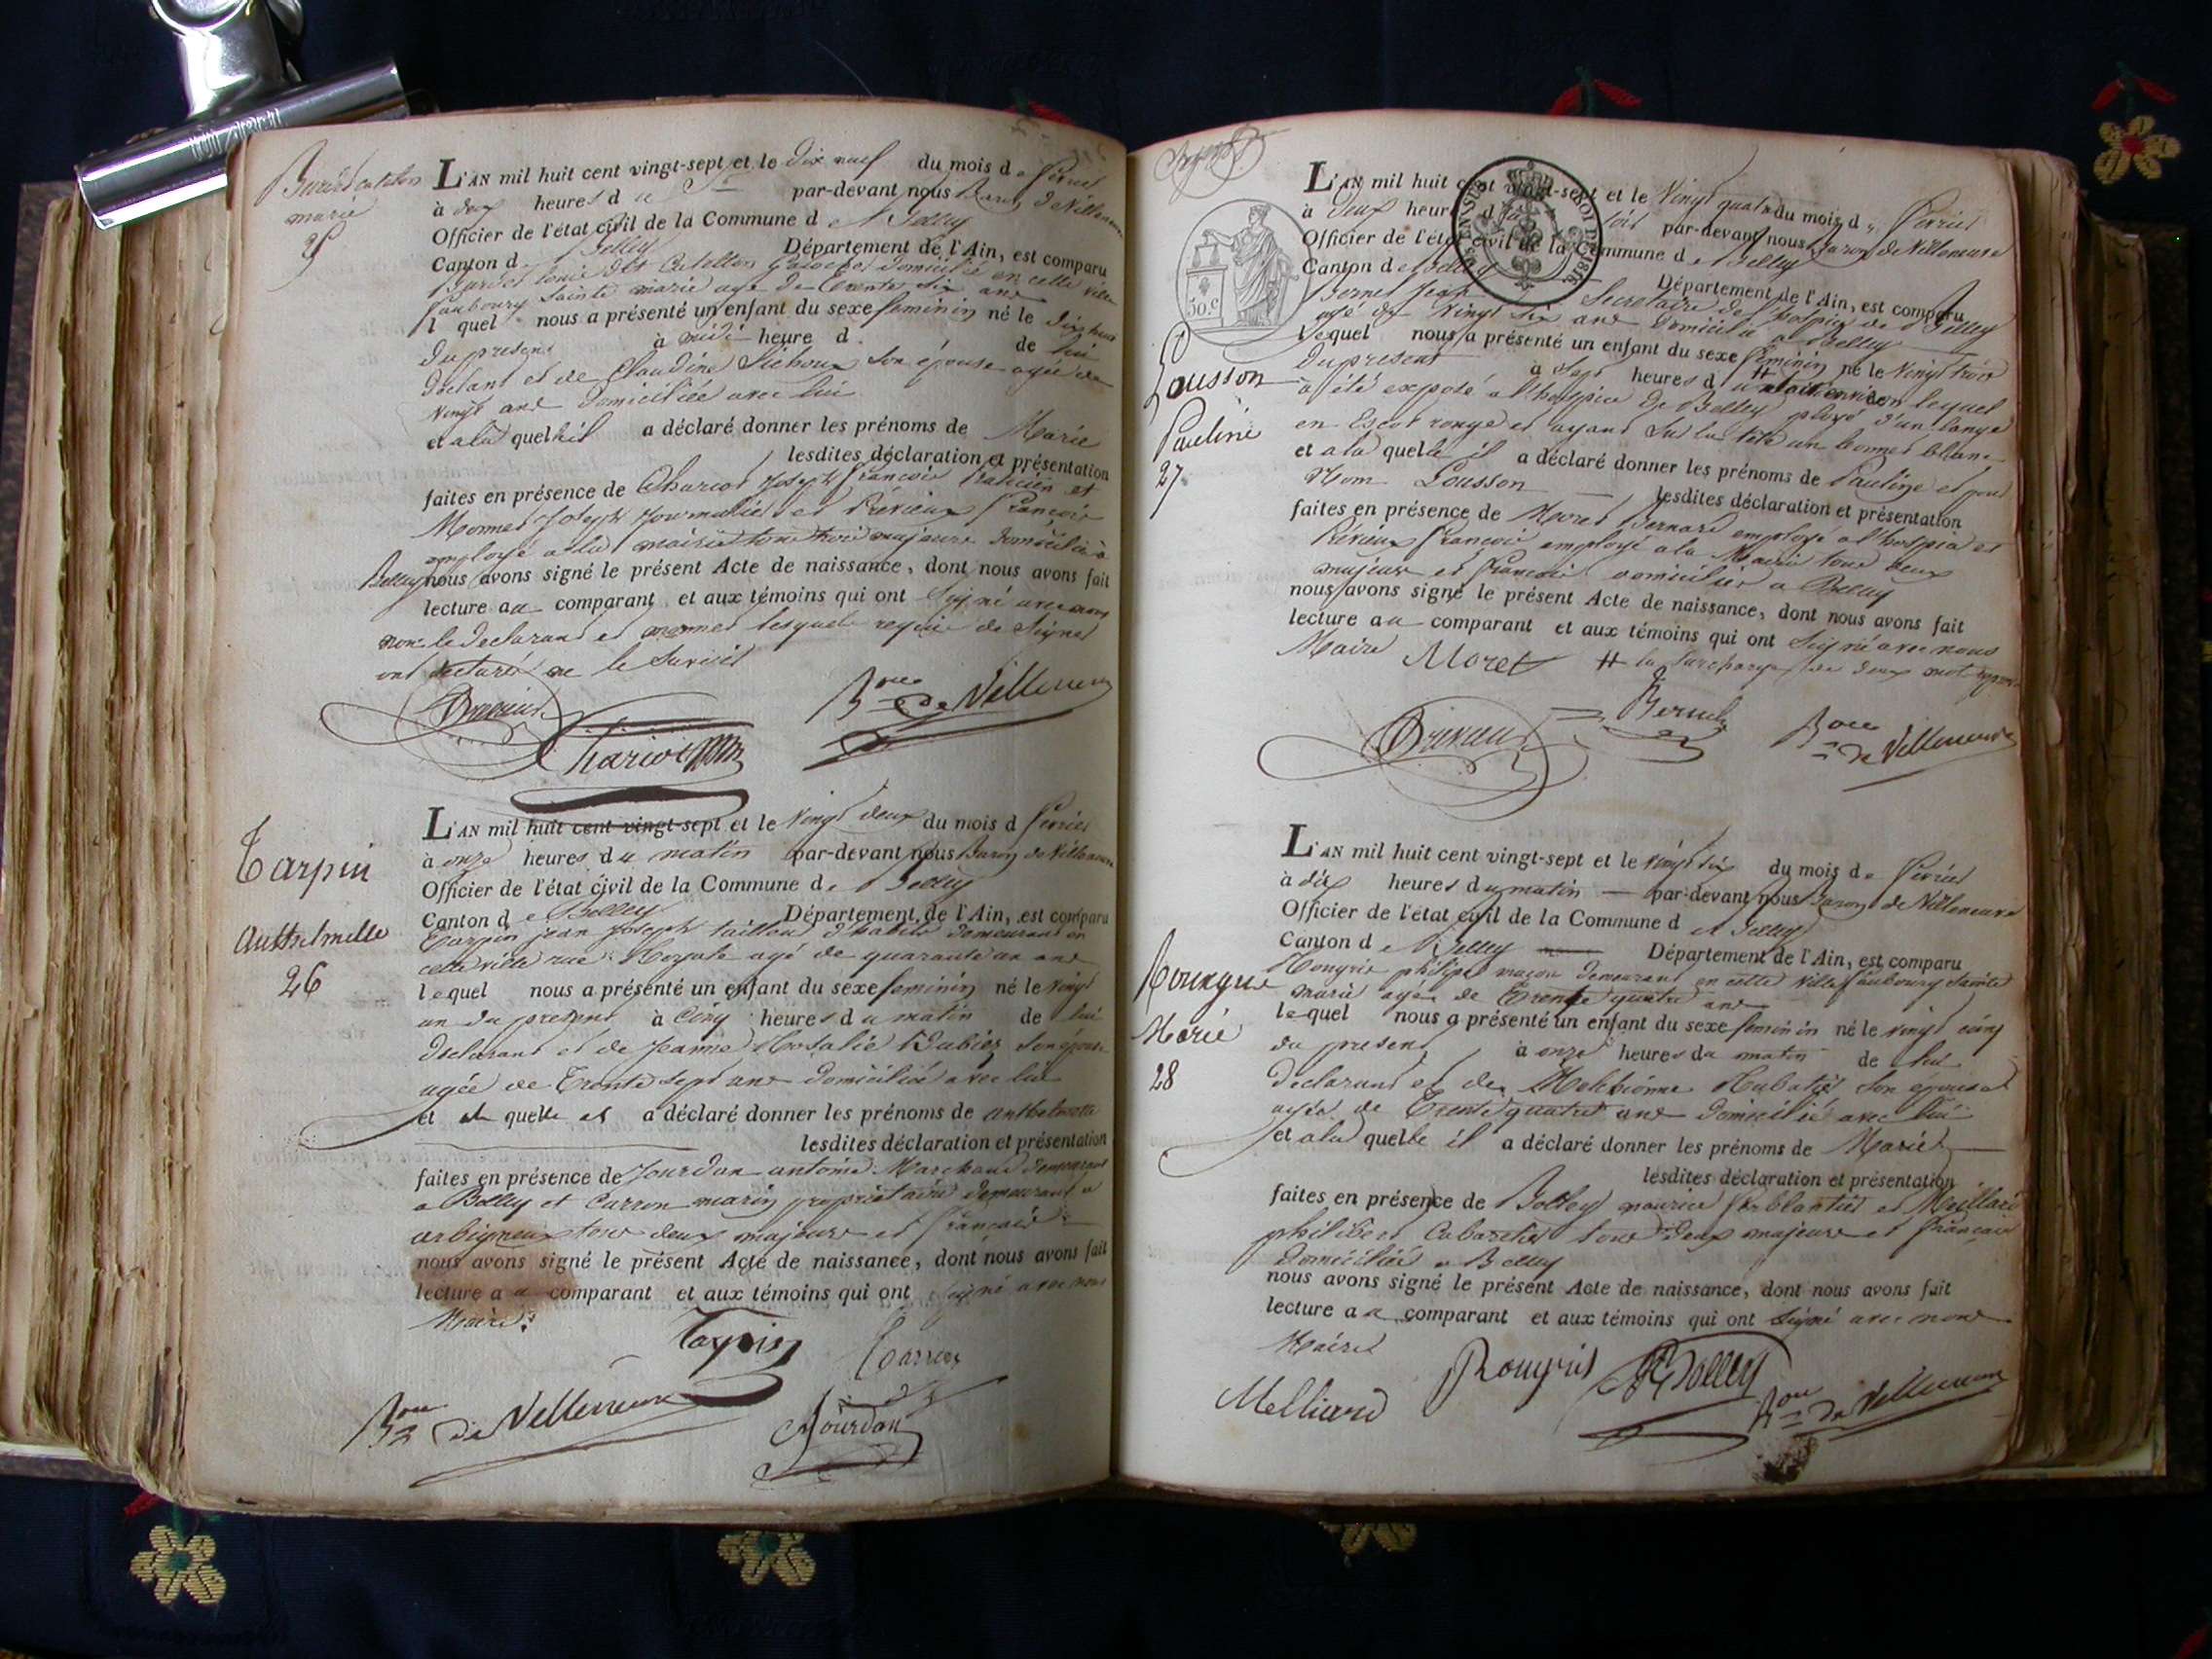 marie
L'AN mil huit cent vingt-sept et le dix neuf du mois de février
à deux heures du par-devant nous Baron de Villeneuve
Officier de l'état civil de la Commune de Belley
Canton de Belley Département de l'Ain, est comparu
Louis dit domicilié en cette ville
faubourg Sainte marie agé de trente six ans
lequel nous a présenté un enfant du sexe feminin né le dix huit
du present à midi heure d de lui
declarant et de Claudine son épouse agée de
vingt ans domiciliée avec lui
et a la quelle il a déclaré donner les prénoms de Marie
lesdites déclaration et présentation
faites en présence de Chariot Joseph françois praticien et
Monnet Joseph journalier et Prévieux françois
employé a la mairie tous trois majeurs domiciliés a
Belley nous avons signé le présent Acte de naissance, dont nous avons fait
lecture au comparant et aux témoins qui ont signé avec nous
non le declarant et monnet lesquels requis de signer
ont declaré ne le savoir
Prévieux
Chariot
Bon de Villeneuve
Tarpin
Anthelmette
26
L'AN mil huit cent vingt-sept et le vingt deux du mois d février
à onze heures du matin par-devant nous Baron de Villeneuve
Officier de l'état civil de la Commune de Belley
Canton de Belley Département de l'Ain, est comparu
Tarpin jean Joseph tailleur d'habits demeurant en
cette ville rue Royale agé de quarante un ans
lequel nous a présenté un enfant du sexe feminin né le vingt
un du present à cinq heures du matin de lui
declarant et de Jeanne Rosalie Bubier son épouse
agée de trente sept ans domiciliée avec lui
et a la quelle il a déclaré donner les prénoms de anthelmette
lesdites déclaration et présentation
faites en présence de Jourdan antoine Marchand demeurant
a Belley et Carron marin propriétaire demeurant a
arbignieux tous deux majeurs et français
nous avons signé le présent Acte de naissance, dont nous avons fait
lecture au comparant et aux témoins qui ont signé avec nous
Maire.
Tarpin
Carron
Bon de Villeneuve
Jourdan
50.c
Lousson
Pauline
27.
L'AN mil huit cent vingt-sept et le vingt quatre du mois de février
à deux heures du soir par-devant nous Baron de Villeneuve
Officier de l'état civil de la Commune de Belley
Canton de Belley Département de l'Ain, est comparu
Bernet Jean Secretaire de l'hospice de Belley
agé de vingt six ans domicilié a Belley
lequel nous a présenté un enfant du sexe feminin né le vingt trois
du present à sept heures du environ lequel
a été exposé a l'hospice de Belley ployé d'un lange
en Escot rouge et ayant sur la tête un bonnet blanc
et a la quelle il a déclaré donner les prénoms de Pauline et pour
Nom Lousson lesdites déclaration et présentation
faites en présence de Moret Bernard employé a l'hospice et
Prévieux françois employé a la Mairie tous deux
majeurs et français domiciliés a Belley
nous avons signé le présent Acte de naissance, dont nous avons fait
lecture au comparant et aux témoins qui ont signé avec nous
Maire Moret # la surcharge de deux mots
Prévieux
Bernet
Bon de Villeneuve
Marie
28
L'AN mil huit cent vingt-sept et le vingt six du mois de février
à dix heures du matin par-devant nous Baron de Villeneuve
Officier de l'état civil de la Commune de Belley
Canton de Belley Département de l'Ain, est comparu
Rougris philipe maçon demeurant en cette ville faubourg Sainte
marie agé de trente quatre ans
lequel nous a présenté un enfant du sexe feminin né le vingt cinq
du present à onze heures du matin de lui
declarant et de son epouse
agée de trente quatre ans domiciliée avec lui
et a la quelle il a déclaré donner les prénoms de Marie
lesdites déclaration et présentation
faites en présence de Bolley maurice ferblantier et Meillard
philibert Cabaretier tous deux majeurs et français
domiciliés a Belley
nous avons signé le présent Acte de naissance, dont nous avons fait
lecture au comparant et aux témoins qui ont signé avec nous
Maire
Rougris
Bolley
Melliard
Bon de Villeneuve